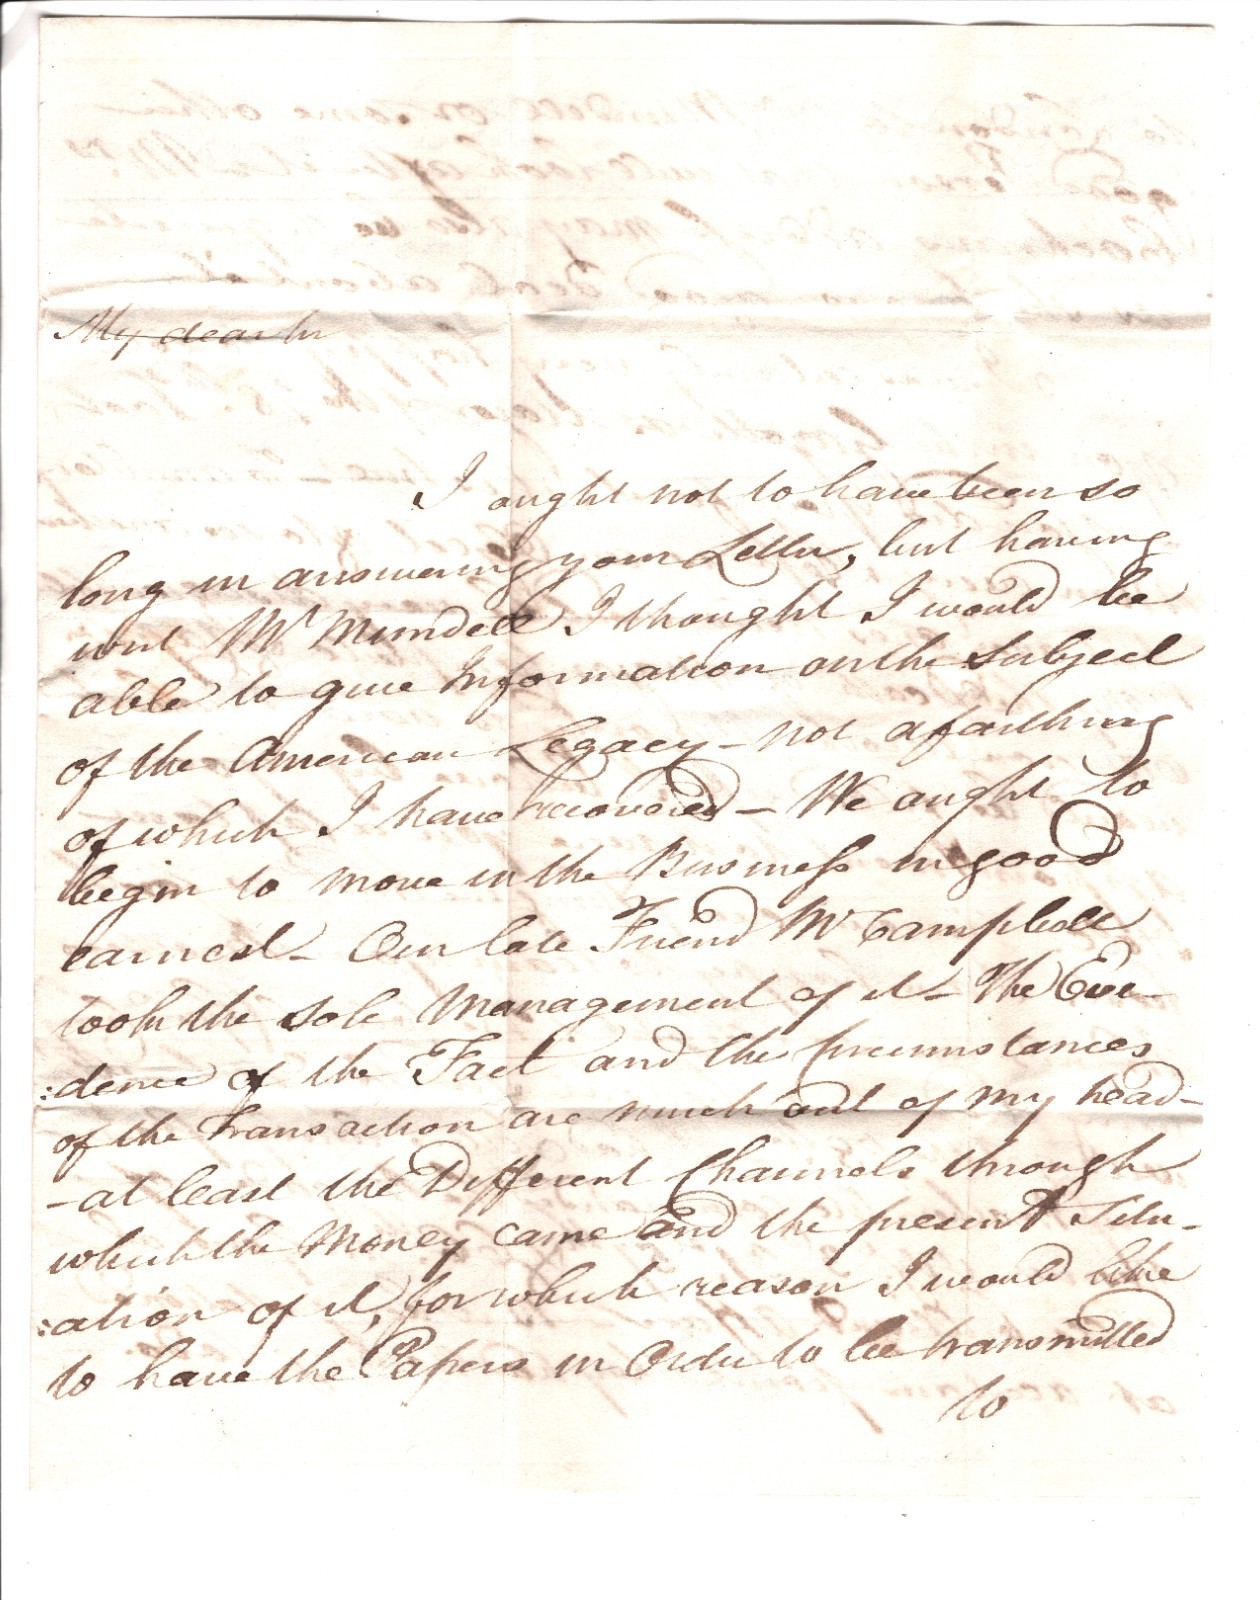 My dear Sir
I ought not to have been so
long in answering your Letter, but having
writ Mr Mundell I thought I would be
able to give Information on the Subject
of the American Legacy - not a farthing
of which I have recovered - We ought to
begin to move in the Business in good
earnest - Our late Friend Mr Campbell
took the sole Management of it - The Evi-
:dence of the Fact and the circumstances
of the Transaction are much out of my head -
- at least the Different Channels through
which the Money came and the present Situ-
:ation of it, for which reason I would like
to have the Papers in Order to be transmitted
to